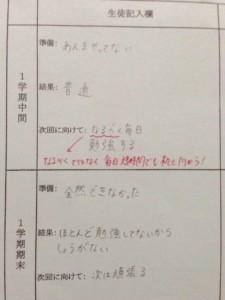 生徒記入欄
1学期中間
準備: あんまやってない
結果: 普通
次回に向けて: なるべく毎日
勉強する
なるべくではなく毎日短時間でも机に向かう!
1学期期末
準備: 全然できなかった
結果: ほとんど勉強してないから
しょうがない
次回に向けて: 次は頑張る